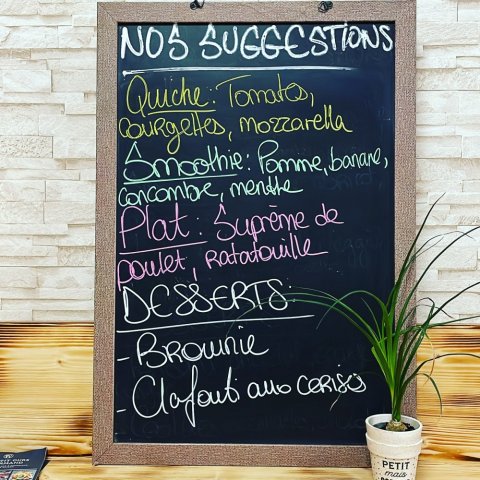 NOS SUGGESTIONS
Quiche: Tomates,
courgettes, mozzarella
Smoothie: Pomme, banane,
concombre, menthe
Plat: Suprême de
poulet, Ratatouille
DESSERTS:
- Brownie
- Clafouti aux cerises
PETIT
mais